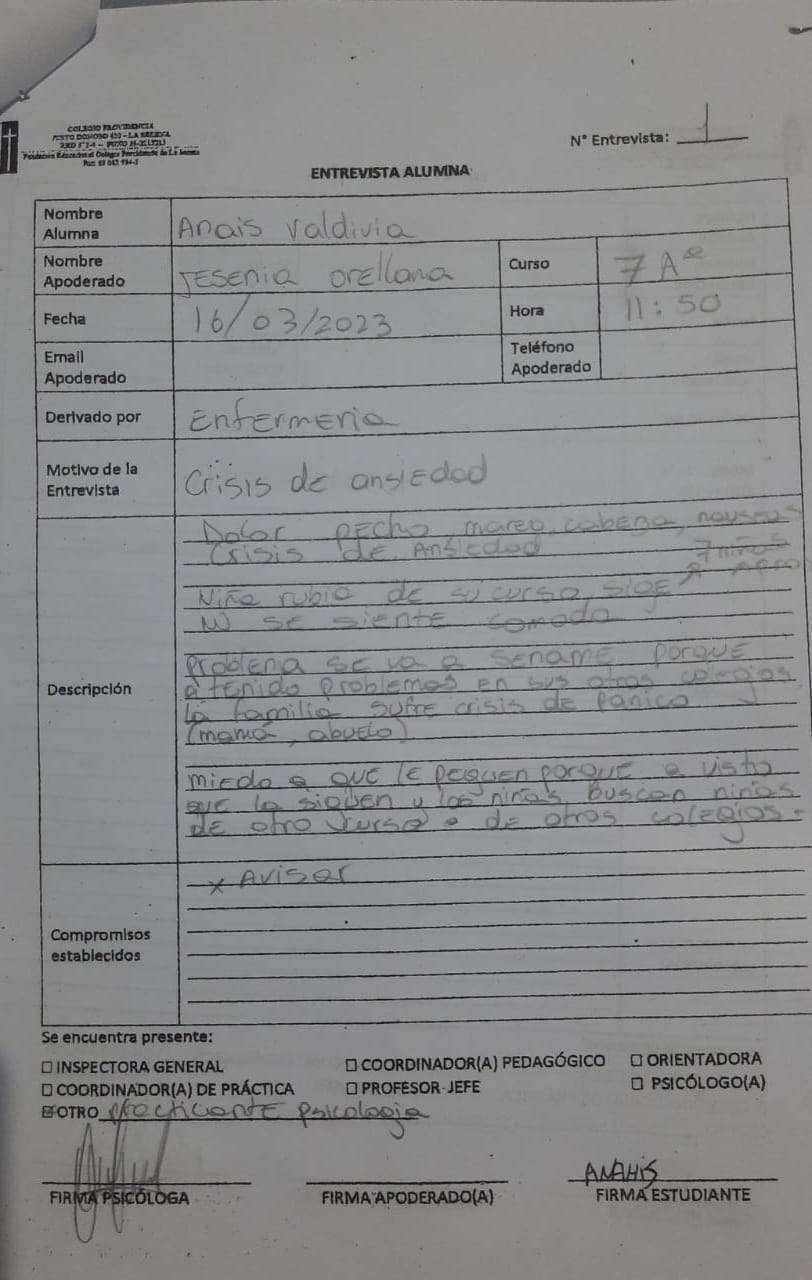 COLEGIO PROVIDENCIA
JUSTO DONOSO 420 - LA SERENA
N° Entrevista: 1
ENTREVISTA ALUMNA
Nombre Alumna Anais Valdivia
Nombre Apoderado Jesenia orellana Curso 7 Aº
Fecha 16/03/2023 Hora 11:50
Email Apoderado Teléfono Apoderado
Derivado por Enfermeria
Motivo de la Entrevista Crisis de ansiedad
Descripción
Dolor pecho, mareo, cabeza, nauseas
Crisis de Ansiedad 7 niñas
Niña rubia de su curso, sige
No se siente comoda
problema se va a sename porque
a tenido problemas en sus otros colegios
la familia sufre crisis de panico
(mamá, abuelo)
miedo a que le peguen porque a visto
que la siguen y las niñas buscan niñas
de otro curso o de otros colegios.
Compromisos establecidos
x Avisar
Se encuentra presente:
☐ INSPECTORA GENERAL ☐ COORDINADOR(A) PEDAGÓGICO ☐ ORIENTADORA
☐ COORDINADOR(A) DE PRÁCTICA ☐ PROFESOR JEFE ☐ PSICÓLOGO(A)
☒ OTRO practicante psicologia
ANAHIS
FIRMA PSICÓLOGA FIRMA APODERADO(A) FIRMA ESTUDIANTE